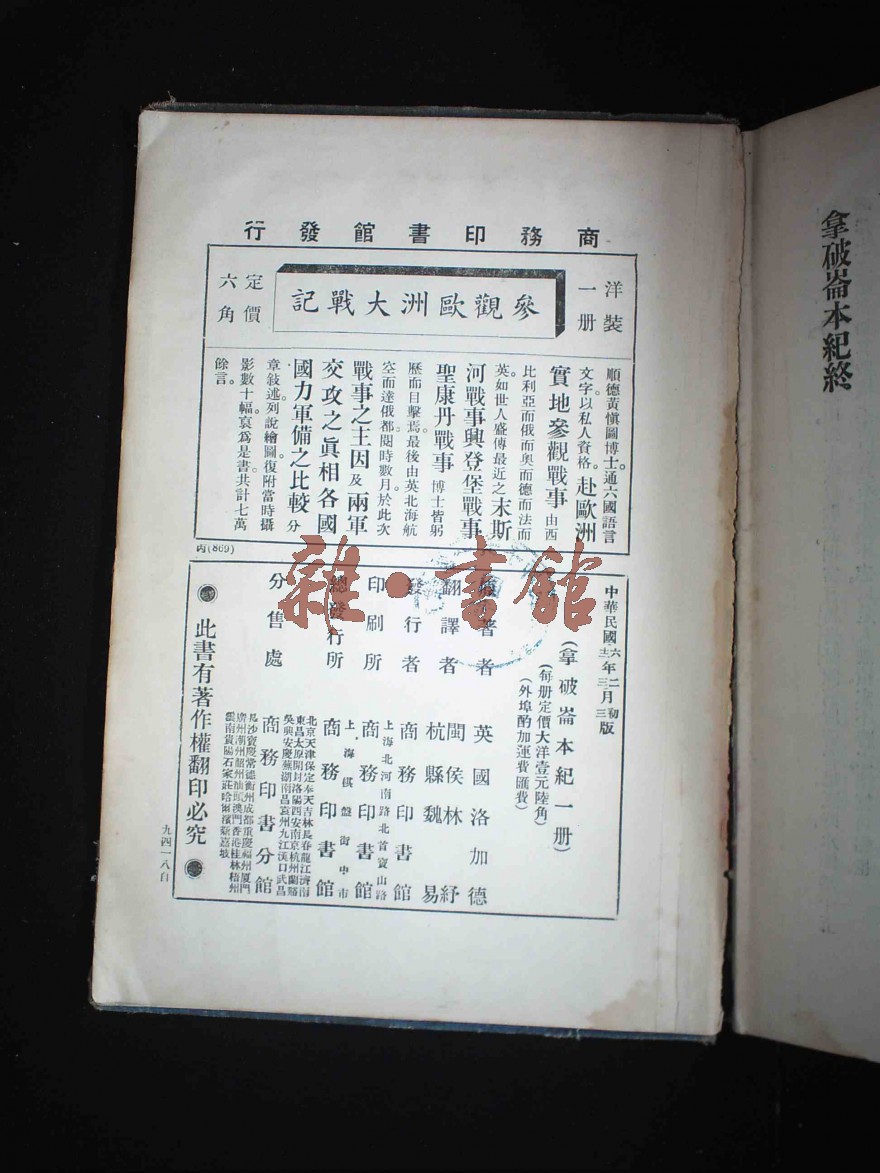 拿破崙本紀終
商務印書館發行
洋裝一册
參觀歐洲大戰記
定價六角
順德黃愼圖博士。通六國語言
文字。以私人資格。赴歐洲
實地參觀戰事 由西
比利亞而俄而奧而德而法而
英。如世人盛傳最近之末斯
河戰事興登堡戰事
聖康丹戰事 博士皆躬
歷而目擊焉。最後由英北海航
空而達俄都。閱時數月。於此次
戰事之主因及兩軍
交攻之眞相各國
國力軍備之比較 分
章敍述。列說繪圖。復附當時攝
影數十幅。裒爲是書。共計七萬
餘言。
丙(869)
中華民國
六年二月初版
(拿破崙本紀一册)
(每册定價大洋壹元陸角)
(外埠酌加運費匯費)
原著者 英國洛加德
翻譯者 閩侯林紓
杭縣魏易
發行者 商務印書館
上海北河南路北首寶山路
印刷所 商務印書館
上海棋盤街中市
總發行所 商務印書館
北京天津保定奉天吉林長春龍江濟南
東昌太原開封洛陽西安南京杭州蘭谿
吳興安慶蕪湖南昌袁州九江漢口武昌
分售處 商務印書分館
長沙寶慶常德衡州成都重慶福州廈門
廣州潮州韶州汕頭澳門香港桂林梧州
雲南貴陽石家莊哈爾濱新嘉坡
此書有著作權翻印必究
九四一八自
雜·書館